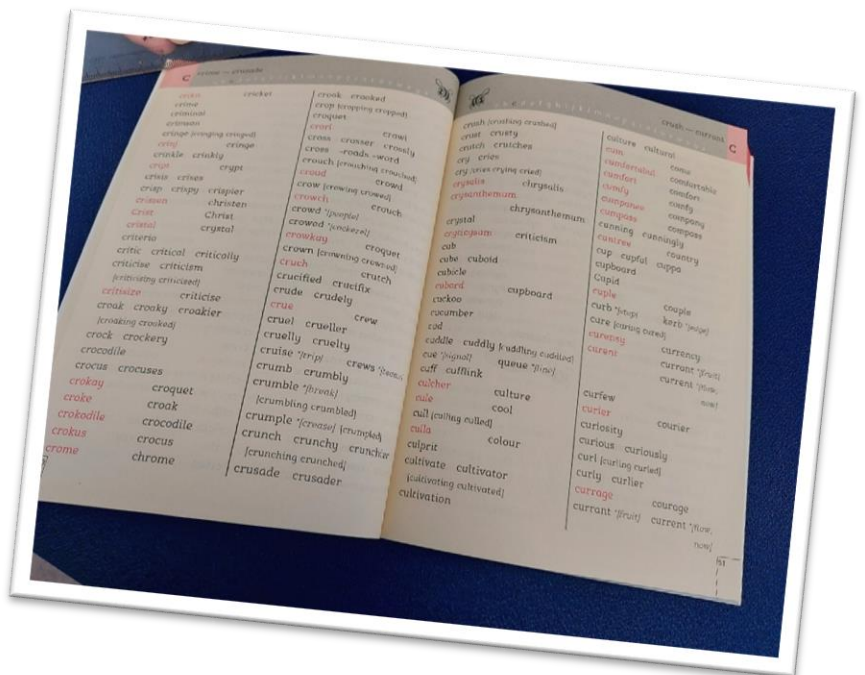 C crime — crusade
cricket
crime
criminal
crimson
cringe [cringing cringed]
crinj cringe
crinkle crinkly
cript crypt
crisis crises
crisp crispy crispier
crissen christen
Crist Christ
cristal crystal
criteria
critic critical critically
criticise criticism
[criticising criticised]
critisize criticise
croak croaky croakier
[croaking croaked]
crock crockery
crocodile
crocus crocuses
crokay croquet
croke croak
crokodile crocodile
crokus crocus
crome chrome
crook crooked
crop [cropping cropped]
croquet
crorl crawl
cross crosser crossly
cross -roads -word
crouch [crouching crouched]
croud crowd
crow [crowing crowed]
crowch crouch
crowd *[people]
crowed *[cockerel]
crowkay croquet
crown [crowning crowned]
cruch crutch
crucified crucifix
crude crudely
crue crew
cruel crueller
cruelly cruelty
cruise *[trip] crews
crumb crumbly
crumble *[break]
[crumbling crumbled]
crumple *[crease] [crumpled]
crunch crunchy crunchier
[crunching crunched]
crusade crusader
crush — currant C
crush [crushing crushed]
crust crusty
crutch crutches
cry cries
cry [cries crying cried]
crysalis chrysalis
crysanthemum
chrysanthemum
crystal
crytisysm criticism
cub
cube cuboid
cubicle
cubord cupboard
cuckoo
cucumber
cud
cuddle cuddly [cuddling cuddled]
cue *[signal] queue *[line]
cuff cufflink
culcher culture
cule cool
cull [culling culled]
culla colour
culprit
cultivate cultivator
[cultivating cultivated]
cultivation
culture cultural
cum come
cumfertabul comfortable
cumfort comfort
cumfy comfy
cumpanee company
cumpass compass
cunning cunningly
cuntree country
cup cupful cuppa
cupboard
Cupid
cuple couple
curb *[stop] kerb *[edge]
cure [curing cured]
curensy currency
curent currant *[fruit]
current *[flow,
now]
curfew
curier courier
curiosity
curious curiously
curl [curling curled]
curly curlier
currage courage
currant *[fruit] current *[flow,
now]
51